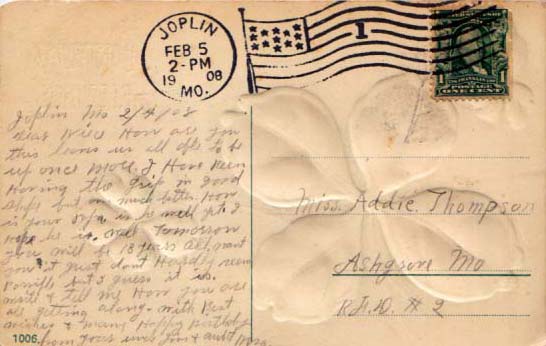 JOPLIN
FEB 5
2-PM
1908
MO.
1
1 POSTAGE 1
ONE CENT
Joplin Mo 2/4/08
Dear Niece How are you
this leaves us all able to be
up once more. I Have Been
Having the grip in good
but am much better. How
is your is he well yet. I
Hope he is. Well tomorrow
you will be 18 years old, want
you it just dont Hardly seem
Possible but I guess it is.
write & tell me How you are
all getting along. with Best
wishes & many Happy Birthdays
from your uncle & aunt
Miss. Addie. Thompson
Ashgrove Mo
R.F.D. # 2
1006.